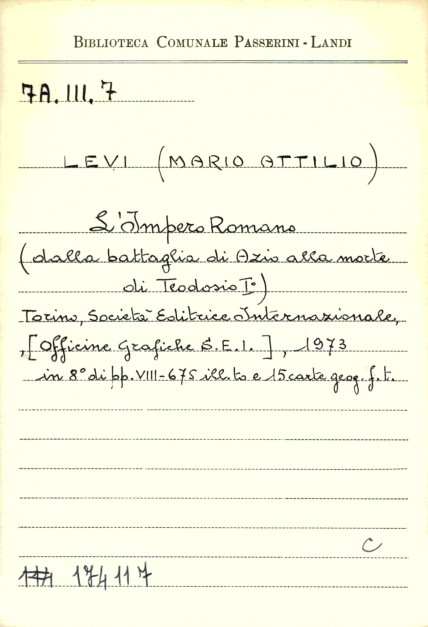 BIBLIOTECA COMUNALE PASSERINI - LANDI
7A. III. 7
LEVI (MARIO ATTILIO)
L'Impero Romano
(dalla battaglia di Azio alla morte
di Teodosio I°)
Torino, Società Editrice Internazionale,
,[Officine Grafiche S.E.I.], 1973
in 8° di pp. VIII-675 ill.to e 15 carte geog. f. t.
C
174117